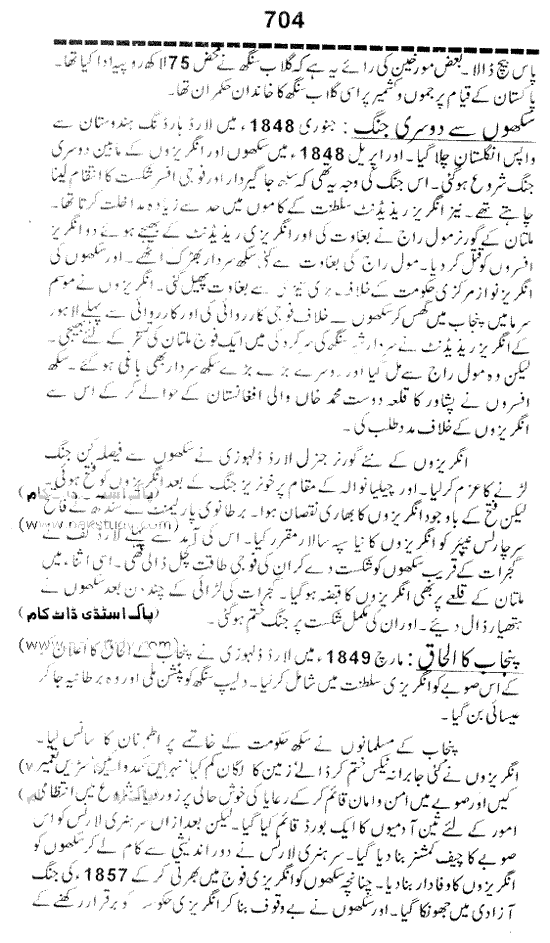 704
پاس بیچ ڈالا۔ بعض مورخین کی رائے یہ ہے کہ گلاب سنگھ نے محض 75 لاکھ روپیہ ادا کیا تھا۔
پاکستان کے قیام پر جموں و کشمیر پر اسی گلاب سنگھ کا خاندان حکمران تھا۔
سکھوں سے دوسری جنگ : جنوری 1848ء میں لارڈ ہارڈنگ ہندوستان سے
واپس انگلستان چلا گیا۔ اور اپریل 1848ء میں سکھوں اور انگریزوں کے مابین دوسری
جنگ شروع ہو گئی۔ اس جنگ کی وجہ یہ تھی کہ سکھ جاگیردار اور فوجی افسر شکست کا انتقام لینا
چاہتے تھے۔ نیز انگریز ریذیڈنٹ سلطنت کے کاموں میں حد سے زیادہ مداخلت کرتا تھا۔
ملتان کے گورنر مول راج نے بغاوت کی اور انگریزی ریذیڈنٹ کے بھیجے ہوئے دو انگریز
افسروں کو قتل کر دیا۔ مول راج کی بغاوت سے کئی سکھ سردار بھڑک اٹھے۔ اور سکھوں کی
انگریز نواز مرکزی حکومت کے خلاف بڑی تیزی سے بغاوت پھیل گئی۔ انگریزوں نے موسم
سرما میں پنجاب میں گھس کر سکھوں کے خلاف فوجی کارروائی کی اور کارروائی سے پہلے لاہور
کے انگریز ریذیڈنٹ نے سردار شیر سنگھ کی سرکردگی میں ایک فوج ملتان کی تسخیر کے لئے بھیجی۔
لیکن وہ مول راج سے مل گیا اور دوسرے بڑے بڑے سکھ سردار بھی باغی ہو گئے۔ سکھ
افسروں نے پشاور کا قلعہ دوست محمد خاں والی افغانستان کے حوالے کر کے اس سے
انگریزوں کے خلاف مدد طلب کی۔
انگریزوں کے نئے گورنر جنرل لارڈ ڈلہوزی نے سکھوں سے فیصلہ کن جنگ
لڑنے کا عزم کر لیا۔ اور چیلیانوالہ کے مقام پر خونریز جنگ کے بعد انگریزوں کو فتح ہوئی۔
لیکن فتح کے باوجود انگریزوں کا بھاری نقصان ہوا۔ برطانوی پارلیمنٹ نے سندھ کے فاتح
سر چارلس نیپئر کو انگریزوں کا نیا سپہ سالار مقرر کیا۔ اس کی آمد سے پہلے لارڈ گف نے
گجرات کے قریب سکھوں کو شکست دے کر ان کی فوجی طاقت کچل ڈالی تھی۔ اسی اثناء میں
ملتان کے قلعے پر بھی انگریزوں کا قبضہ ہو گیا۔ گجرات کی لڑائی کے چند دن بعد سکھوں نے
ہتھیار ڈال دیئے۔ اور ان کی مکمل شکست پر جنگ ختم ہو گئی۔
(پاک اسٹڈی ڈاٹ کام
پنجاب کا الحاق : مارچ 1849ء میں لارڈ ڈلہوزی نے پنجاب کے الحاق کا اعلان کر
کے اس صوبے کو انگریزی سلطنت میں شامل کر لیا۔ دلیپ سنگھ کو پنشن ملی اور وہ برطانیہ جا کر
عیسائی بن گیا۔
پنجاب کے مسلمانوں نے سکھ حکومت کے خاتمے پر اطمینان کا سانس لیا۔
انگریزوں نے کئی جابرانہ ٹیکس ختم کر ڈالے زمین کا لگان کم کیا نہریں کھدوائیں سڑکیں تعمیر
کیں اور صوبے میں امن و امان قائم کر کے رعایا کی خوش حالی پر زور دیا شروع میں انتظامی
امور کے لئے تین آدمیوں کا ایک بورڈ قائم کیا گیا۔ لیکن بعد ازاں سر ہنری لارنس کو اس
صوبے کا چیف کمشنر بنا دیا گیا۔ سر ہنری لارنس نے دور اندیشی سے کام لے کر سکھوں کو
انگریزوں کا وفادار بنا دیا۔ چنانچہ سکھوں کو انگریزی فوج میں بھرتی کر کے 1857ء کی جنگ
آزادی میں جھونکا گیا۔ اور سکھوں نے بے وقوف بنا کر انگریزی حکومت کو برقرار رکھنے کے